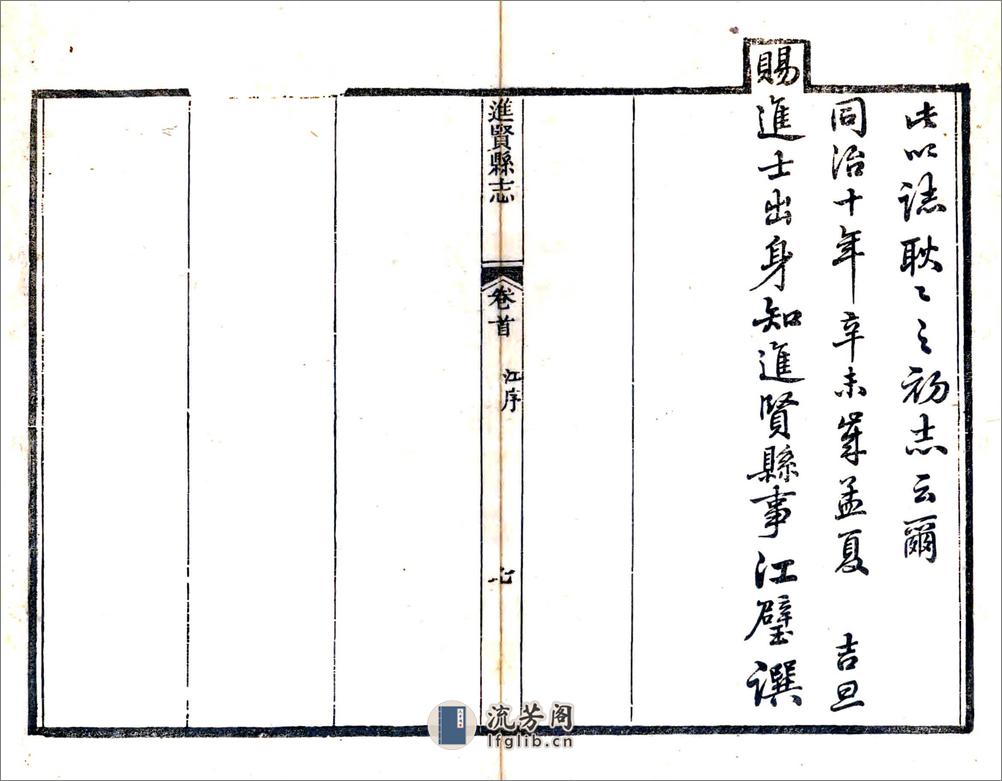 此以誌耿〻之初志云爾
同治十年辛未嵗孟夏 吉旦
賜進士出身知進賢縣事江璧譔
進賢縣志
卷首
江序
七
流芳阁
lfglib.cn